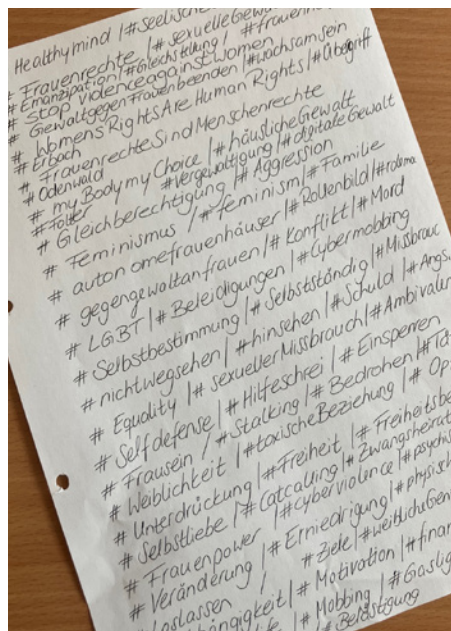 Healthymind |#seelische
# Frauenrechte /# sexuelleGewa
# Emanzipation/#Gleichstellung / #frauenh
# stop violence against women
# GewaltgegenFrauenbeenden |#wachsamsein
# WomensRightsAre Human Rights |#Übergriff
# Erbach
# FrauenrechteSindMenschenrechte
# Odenwald
# my Body my Choice |# häusliche Gewalt
#Folter #Vergewaltigung |#digitaleGewalt
# Gleichberechtigung |# Aggression
# Feminismus /# feminism |# Familie
# autonomefrauenhäuser|# Rollenbild/#
# gegengewaltanfrauen|# Konflikt|# Mord
# LGBT |# Beleidigungen |# Cybermobbing
# Selbstbestimmung |# Selbstständig |# Missbrauc
# nichtwegsehen| # hinsehen |#Schuld |# Angs
# Equality |# sexuellerMissbrauch|# Ambivalen
# Selfdefense| # Hilfeschrei |# Einsperren
# Frausein / #Stalking |# Bedrohen |#
# Weiblichkeit | #toxischeBeziehung |# Op
# Unterdrückung |#Freiheit |# Freiheitsbe
# Selbstliebe |# Catcalling|# Zwangsheirat
# Frauenpower |#cyberviolence |# psychis
# Veränderung |# Erniedrigung|# physisch
# Loslassen / # Ziele|#weiblicheGen
#Motivation |#finan
# Mobbing |#Gaslig
|# Belästigung